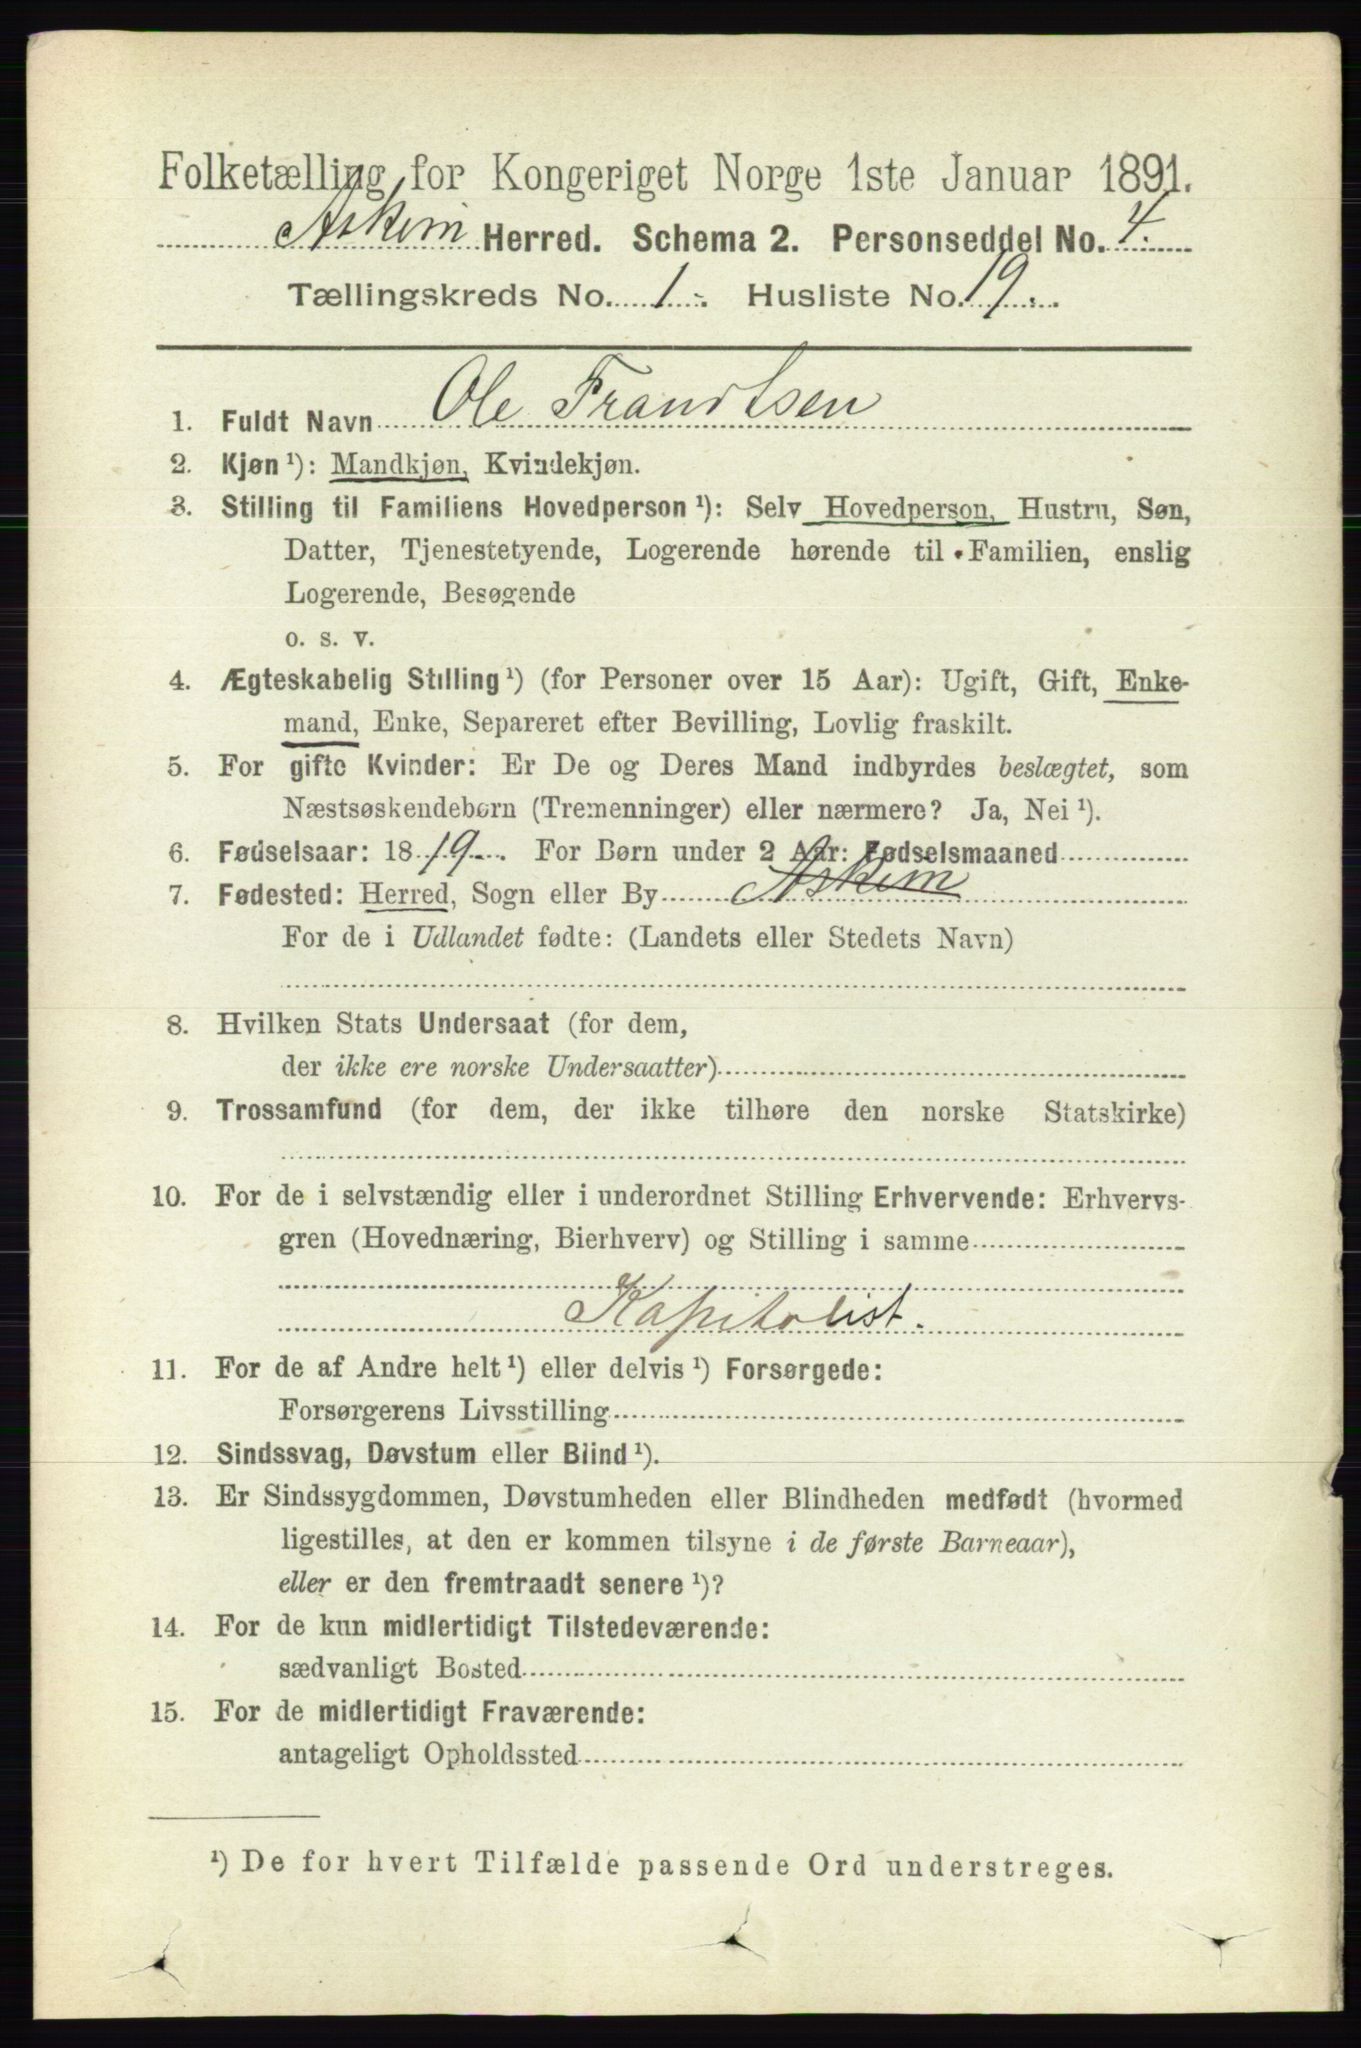 Folketælling for Kongeriget Norge 1ste Januar 1891.
Askim Herred. Schema 2. Personseddel No. 4.
Tællingskreds No. 1. Husliste No. 19.
1. Fuldt Navn Ole Frandtsen
2. Kjøn ¹): Mandkjøn, Kvindekjøn.
3. Stilling til Familiens Hovedperson ¹): Selv Hovedperson, Hustru, Søn,
Datter, Tjenestetyende, Logerende hørende til Familien, enslig
Logerende, Besøgende
o. s. v.
4. Ægteskabelig Stilling ¹) (for Personer over 15 Aar): Ugift, Gift, Enke-
mand, Enke, Separeret efter Bevilling, Lovlig fraskilt.
5. For gifte Kvinder: Er De og Deres Mand indbyrdes beslægtet, som
Næstsøskendebørn (Tremenninger) eller nærmere? Ja, Nei ¹).
6. Fødselsaar: 1819. For Børn under 2 Aar: Fødselsmaaned
7. Fødested: Herred, Sogn eller By Askim
For de i Udlandet fødte: (Landets eller Stedets Navn)
8. Hvilken Stats Undersaat (for dem,
der ikke ere norske Undersaatter)
9. Trossamfund (for dem, der ikke tilhøre den norske Statskirke)
10. For de i selvstændig eller i underordnet Stilling Erhvervende: Erhvervs-
gren (Hovednæring, Bierhverv) og Stilling i samme
Kapitalist.
11. For de af Andre helt ¹) eller delvis ¹) Forsørgede:
Forsørgerens Livsstilling
12. Sindssvag, Døvstum eller Blind ¹).
13. Er Sindssygdommen, Døvstumheden eller Blindheden medfødt (hvormed
ligestilles, at den er kommen tilsyne i de første Barneaar),
eller er den fremtraadt senere ¹)?
14. For de kun midlertidigt Tilstedeværende:
sædvanligt Bosted
15. For de midlertidigt Fraværende:
antageligt Opholdssted
¹) De for hvert Tilfælde passende Ord understreges.